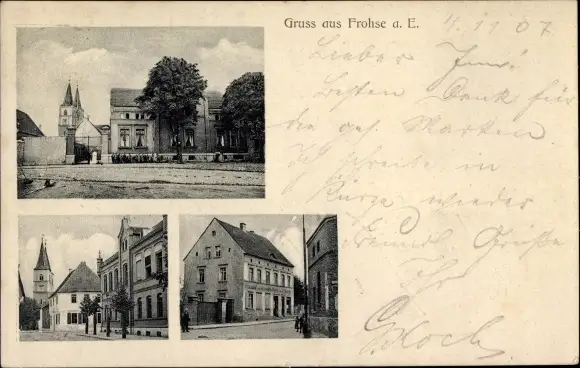 Gruss aus Frohse a. E.
4. 11 07
Lieber
Besten Dank für
die ges. Marken
Ich schreibe in
Kürze wieder
Freundl Grüße
Ihr
G. Koch